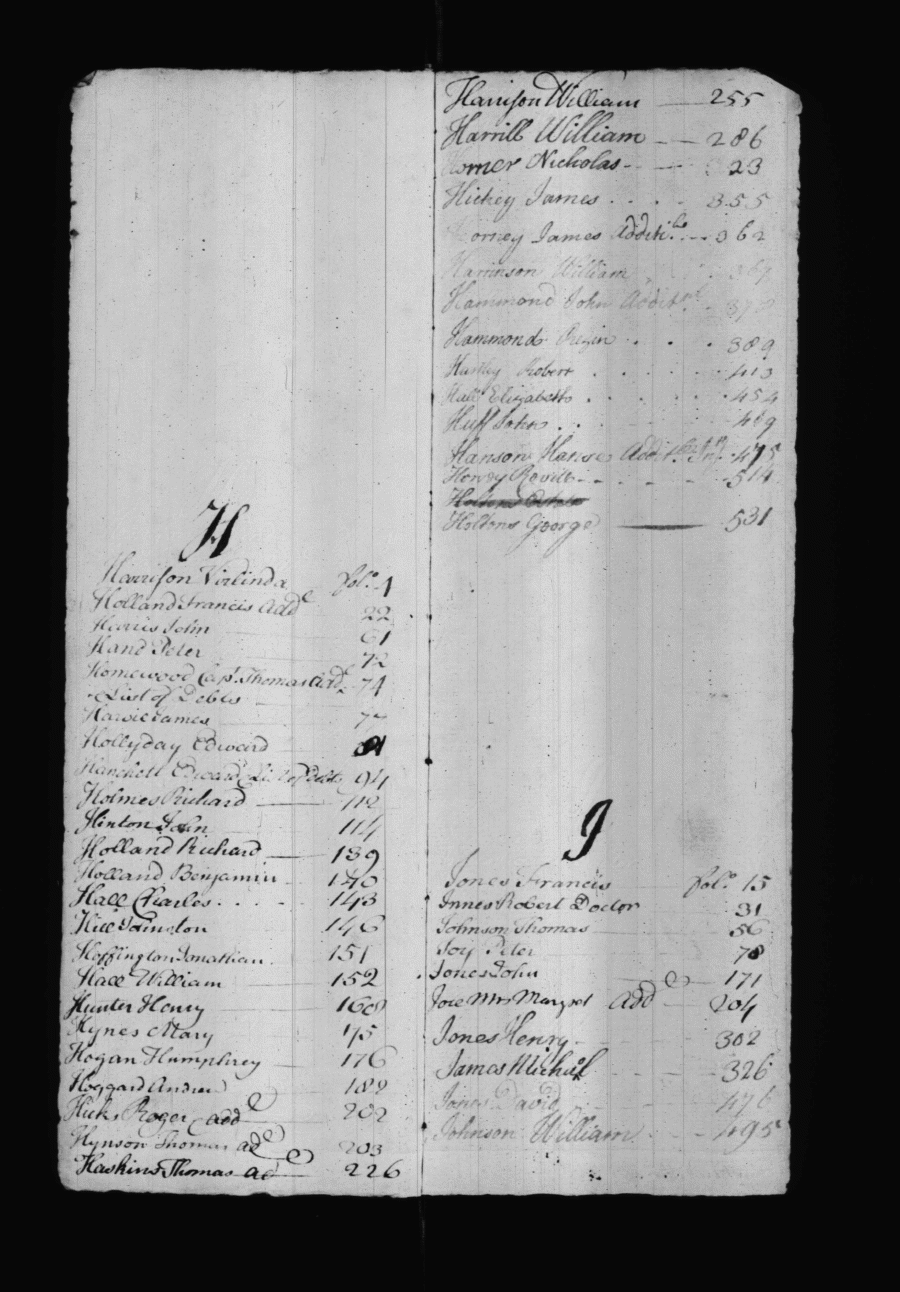 H
Harrison Virlinda fol.o 4
Holland Francis add.e 22
Harris John 61
Hand Peter 72
Homewood Cap.t Thomas ad.l 74
List of Debts
Harvie James 77
Hollyday Edward
Hanchett Edward List of Debts 94
Holmes Richard 112
Hinton John 114
Holland Richard 139
Holland Benjamin 140
Hall Charles 143
Hill Jointon 146
Heffington Jonathan 151
Hall William 152
Hunter Henry 160
Hynes Mary 175
Hogan Humphrey 176
Hoggard Andrew 182
Hicks Roger add.e 202
Hynson Thomas ad.e 203
Haskins Thomas ad.e 226
Harrison William 255
Harrill William 286
Homer Nicholas 323
Hickey James 355
James Addit.l 362
Harrinson William 367
Hammond John Addit.nl 372
Hammond Rezin 389
Hartley Robert 413
Hall Elizabeth 454
Huff John 469
Hanson Addit.l In.ty 475
Henry Revill 514
Holdens George 531
I
Jones Francis fol.o 15
Innes Robert Doctor 31
Johnson Thomas 56
Joy Peter 78
Jones John 171
Joce Mrs Margret Add.e 204
Jones Henry 302
James Michael 326
Jones David 476
Johnson William 495